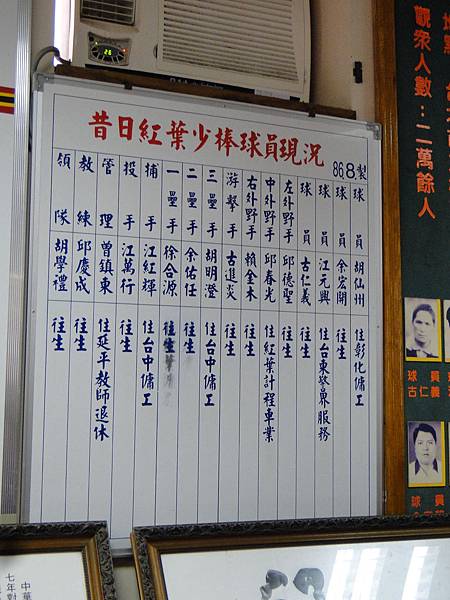 昔日紅葉少棒球員現況
86.8.製
球員 胡仙州 住彰化傭工
球員 余宏開 往生
球員 江元興 住台東警界服務
球員 古仁義 往生
左外野手 邱德聖 往生
中外野手 邱春光 住紅葉計程車業
右外野手 賴金木 往生
游擊手 古進炎 往生
三壘手 胡明澄 住台中傭工
二壘手 余佑任 往生
一壘手 徐合源 往生
捕手 江紅輝 住台中傭工
投手 江萬行 往生
管理 曾鎮東 住延平教師退休
教練 邱慶成 往生
領隊 胡學禮 往生
觀衆人數：二萬餘人
球員
古仁義
球員
中華
七年對